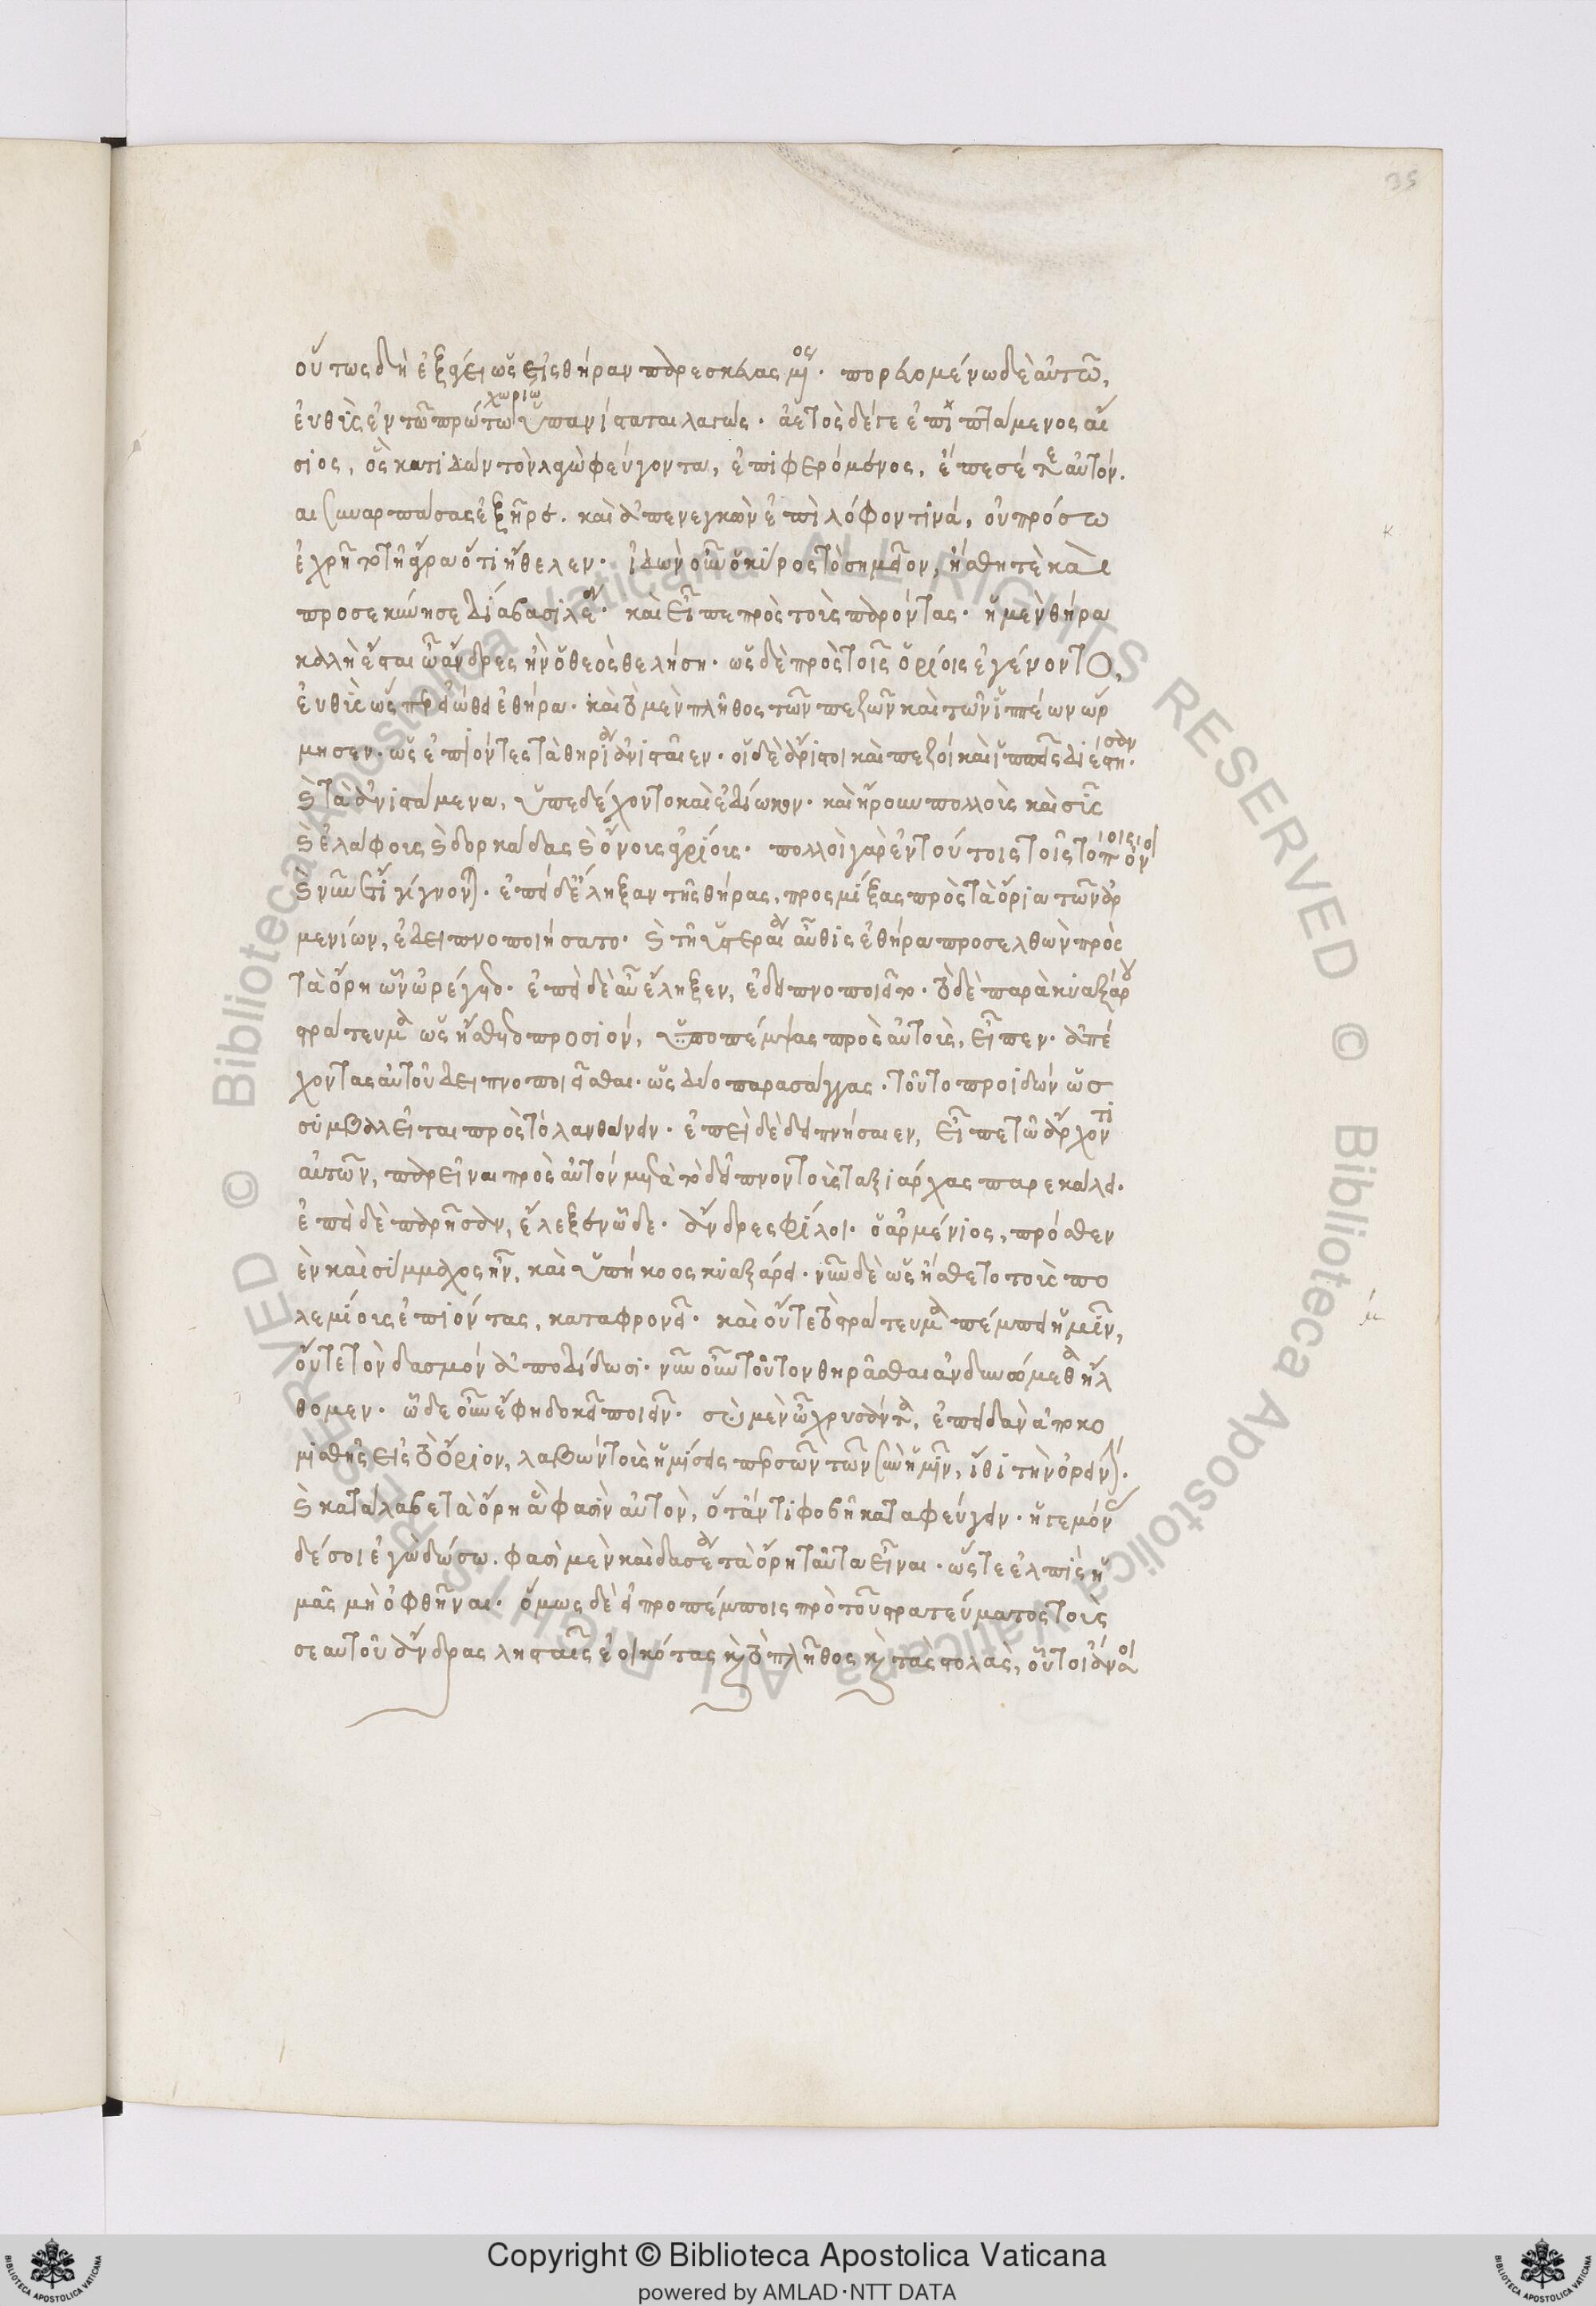 35
οὕτως δὴ ἐξῄει ὡς εἰς θήραν παρεσκευασμένος. πορευομένω δὲ αὐτῶ,
εὐθὺς ἐν τῶ πρώτω χωρίω ὑπανίσταται λαγώς. ἀετὸς δέ γε ἐπιπτάμενος αἴ
σιος, ὃς κατιδὼν τὸν λαγὼ φεύγοντα, ἐπιφερόμενος, ἔπεσέ τε αὐτόν.
καὶ συναρπάσας ἐξῆρε. καὶ ἀπενεγκὼν ἐπὶ λόφον τινά, οὐ πρόσω
ἐχρῆτο τῆ ἄγρα ὅτι ἤθελεν. ἰδὼν οὖν ὁ κύρος τὸ σημεῖον, ἥσθη τὲ καὶ
προσεκύνησε δία βασιλέα. καὶ εἶπε πρὸς τοὺς παρόντας. ἡ μὲν θήρα
καλὴ ἔσται ὦ ἄνδρες ἢν ὁ θεὸς θελήση. ὡς δὲ πρὸς τοῖς ὁρίοις ἐγένοντο,
εὐθὺς ὥσπερ εἰώθει ἐθήρα. καὶ τὸ μὲν πλῆθος τῶν πεζῶν καὶ τῶν ἱππέων ὥρ
μησεν. ὡς ἐπιόντες τὰ θηρία ἀνισταῖεν. οἱ δὲ ἄριστοι καὶ πεζοὶ καὶ ἱππεῖς διέστησαν.
καὶ τὰ ἀνιστάμενα, ὑπεδέχοντο καὶ ἐδίωκον. καὶ ἥρουν πολλοὺς καὶ σῦς
καὶ ἐλάφους καὶ δορκάδας καὶ ὄνους ἀγρίους. πολλοὶ γὰρ ἐν τούτοις τοῖς τόποις ὄνοι
καὶ νῦν ἔτι γίγνονται. ἐπεὶ δὲ ἔληξαν τῆς θήρας, προσμίξας πρὸς τὰ ὅρια τῶν ἀρ
μενίων, ἐδειπνοποιήσατο. καὶ τῆ ὑστεραία αὖθις ἐθήρα προσελθὼν πρὸς
τὰ ὄρη ὧν ὠρέγετο. ἐπεὶ δὲ αὖ ἔληξεν, ἐδειπνοποιεῖτο. τὸ δὲ παρὰ κυαξάρου
στράτευμα ὡς ἤσθετο προσιόν, ὑποπέμψας πρὸς αὐτοὺς, εἶπεν. ἀπέ
χοντας αὐτοῦ δειπνοποιεῖσθαι. ὡς δύο παρασάγγας. τοῦτο προιδὼν ὡς
συμβαλεῖται πρὸς τὸ λανθάνειν. ἐπεὶ δὲ δειπνήσαιεν, εἶπε τῶ ἄρχοντι
αὐτῶν, παρεῖναι πρὸς αὐτόν μετὰ τὸ δεῖπνον τοὺς ταξιάρχας παρεκάλει.
ἐπεὶ δὲ παρῆσαν, ἔλεξεν ὧδε. ἄνδρες φίλοι. ὁ ἀρμένιος, πρόσθεν
ἐν καὶ σύμμαχος ἦν, καὶ ὑπήκοος κυαξάρει. νῦν δὲ ὡς ἤσθετο τοὺς πο
λεμίους ἐπιόντας, καταφρονεῖ. καὶ οὔτε τὸ στράτευμα πέμπει ἡμῖν,
οὔτε τὸν δασμὸν ἀποδίδωσι. νῦν οὖν τοῦτον θηρᾶσθαι ἂν δυνώμεθα ἤλ
θομεν. ὧδε οὖν ἔφη δοκεῖ ποιεῖν. σὺ μὲν ὦ χρυσάντα, ἐπειδὰν ἀποκο
μισθῆς εἰς τὸ ὅριον, λαβὼν τοὺς ἡμίσεις περσῶν τῶν σὺν ἡμῖν, ἴθι τὴν ὀρεινήν.
καὶ κατάλαβε τὰ ὄρη ἃ φασὶν αὐτὸν, ὅταν τι φοβῆ καταφεύγειν. ἡγεμόνας
δέ σοι ἐγὼ δώσω. φασὶ μὲν καὶ δασέα τὰ ὄρη ταῦτα εἶναι. ὥστε ἐλπὶς ἡ
μᾶς μὴ ὀφθῆναι. ὅμως δὲ εἰ προπέμποις πρὸ τοῦ στρατεύματος τοὺς
σεαυτοῦ ἄνδρας λησταῖς ἐοικότας καὶ τὸ πλῆθος καὶ τὰς στολὰς, οὗτοι ἄν σοι
Copyright © Biblioteca Apostolica Vaticana
powered by AMLAD·NTT DATA